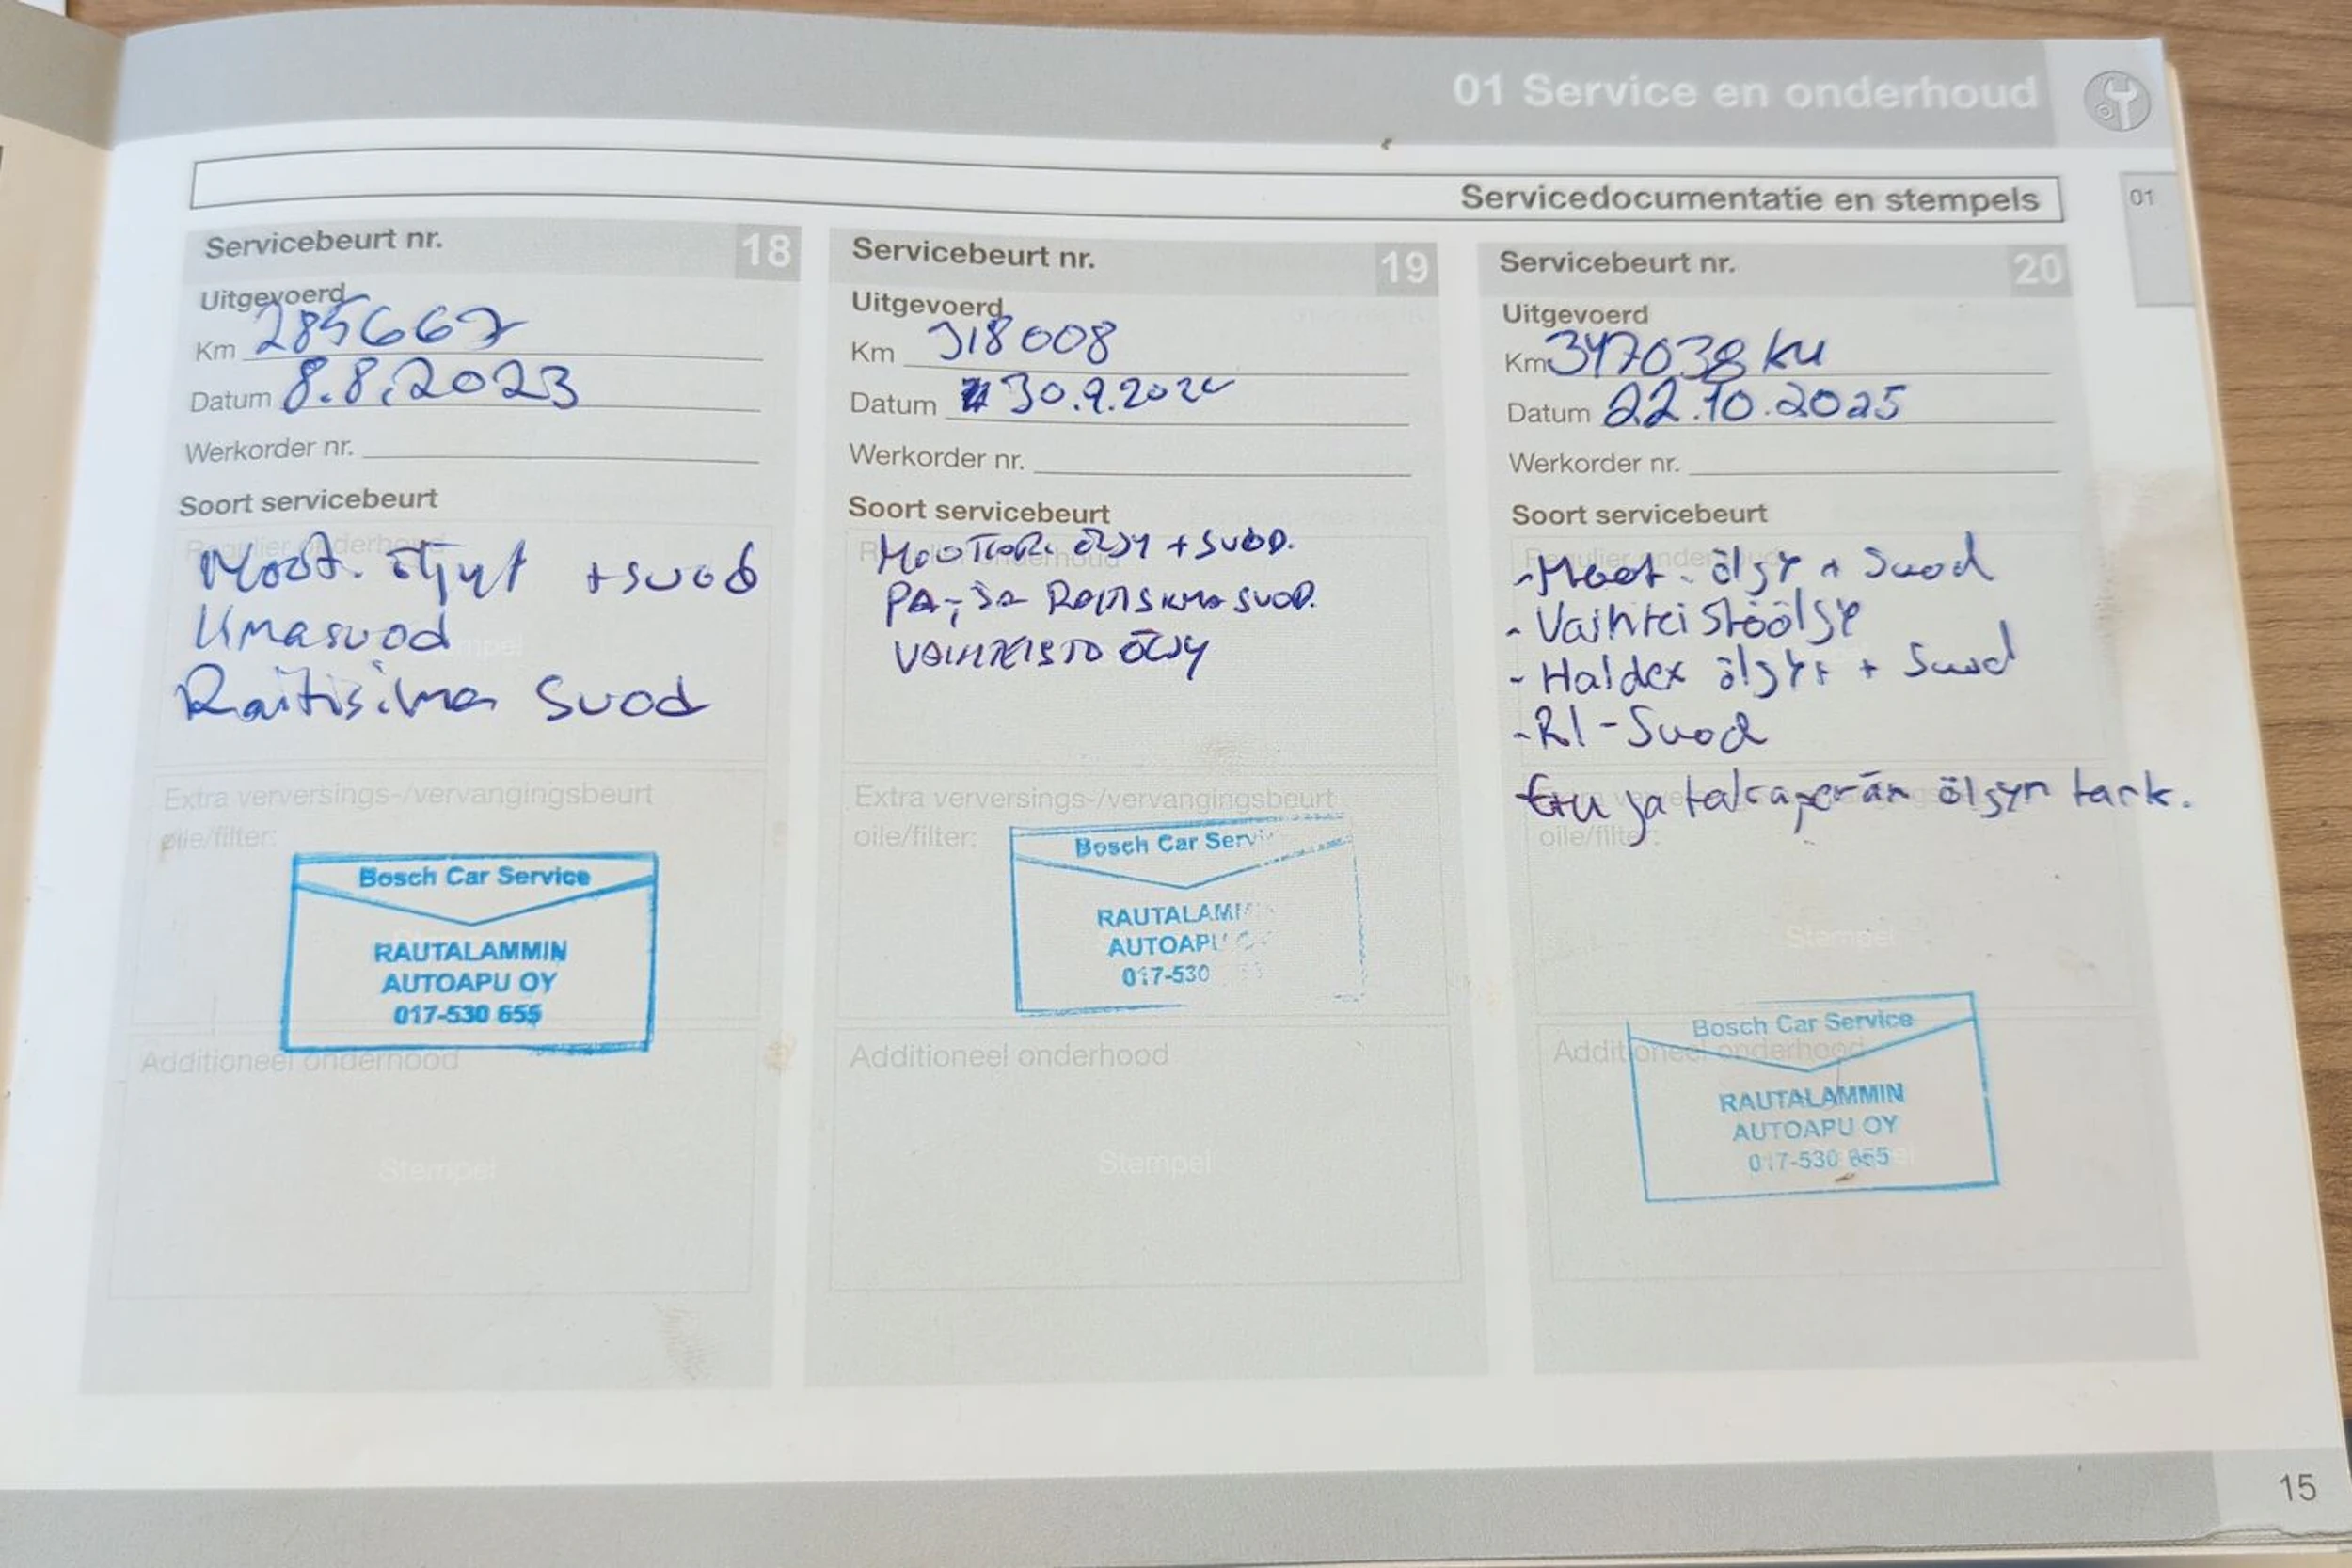 01 Service en onderhoud
Servicedocumentatie en stempels
01
Servicebeurt nr. 18
Uitgevoerd
Km 285667
Datum 8.8.2023
Werkorder nr.
Soort servicebeurt
Regulier onderhoud
Moot. öljyt + suod
Ilmasuod
Raitisilma suod
Extra verversings-/vervangingsbeurt
olie/filter:
Bosch Car Service
RAUTALAMMIN
AUTOAPU OY
017-530 655
Additioneel onderhoud
Stempel
Servicebeurt nr. 19
Uitgevoerd
Km 318008
Datum 30.9.202
Werkorder nr.
Soort servicebeurt
MOOTTORI ÖLJY + SUOD.
PA- JA RAITISILMA SUOD.
VAIHTEISTO ÖLJY
Extra verversings-/vervangingsbeurt
oile/filter:
Bosch Car Servi
RAUTALAMM
AUTOAPU O
017-530
Additioneel onderhoud
Stempel
Servicebeurt nr. 20
Uitgevoerd
Km 347038 km
Datum 22.10.2025
Werkorder nr.
Soort servicebeurt
- Moot. öljy + Suod
- Vaihteistöölje
- Haldex öljyt + Suod
- RI-Suod
Etu ja takaperän öljyn tark.
oile/filter:
Stempel
Bosch Car Service
Additioneel onderhoud
RAUTALAMMIN
AUTOAPU OY
017-530 655
15